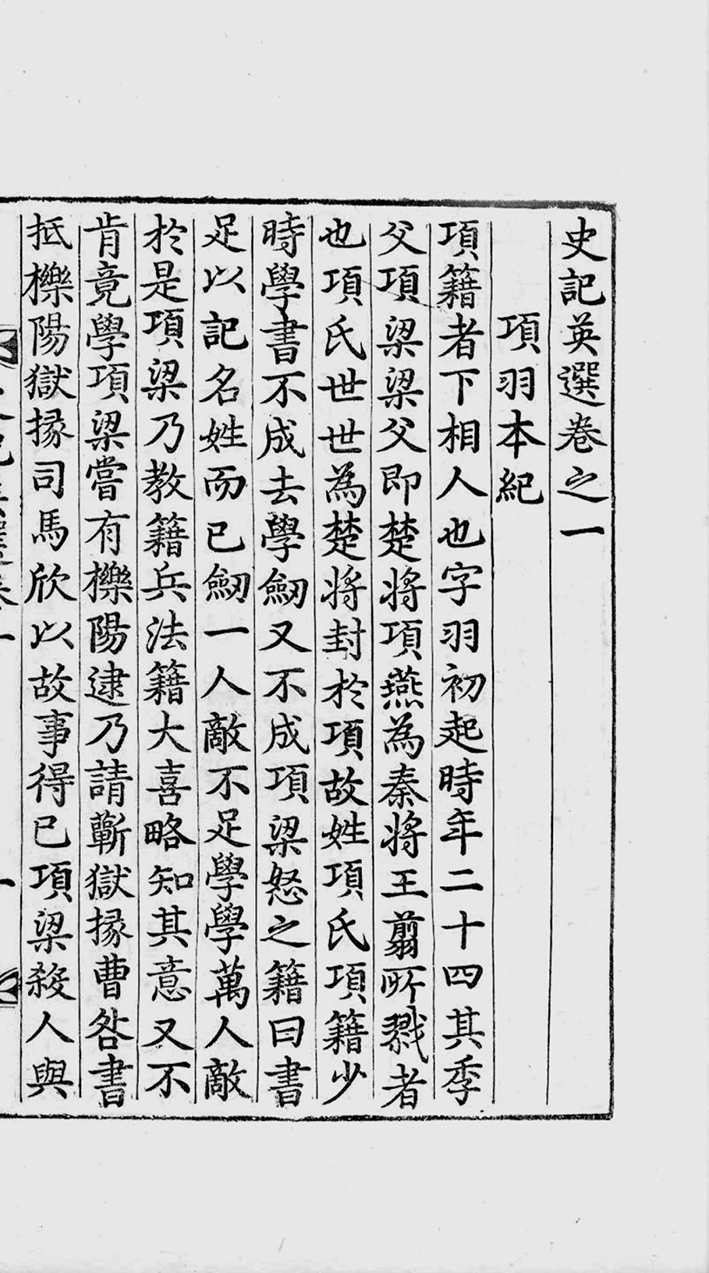 史記英選卷之一
項羽本紀
項籍者下相人也字羽初起時年二十四其季
父項梁梁父即楚將項燕為秦將王翦所戮者
也項氏世世為楚將封於項故姓項氏項籍少
時學書不成去學劒又不成項梁怒之籍曰書
足以記名姓而已劒一人敵不足學學萬人敵
於是項梁乃教籍兵法籍大喜略知其意又不
肯竟學項梁嘗有櫟陽逮乃請蘄獄掾曹咎書
抵櫟陽獄掾司馬欣以故事得已項梁殺人與